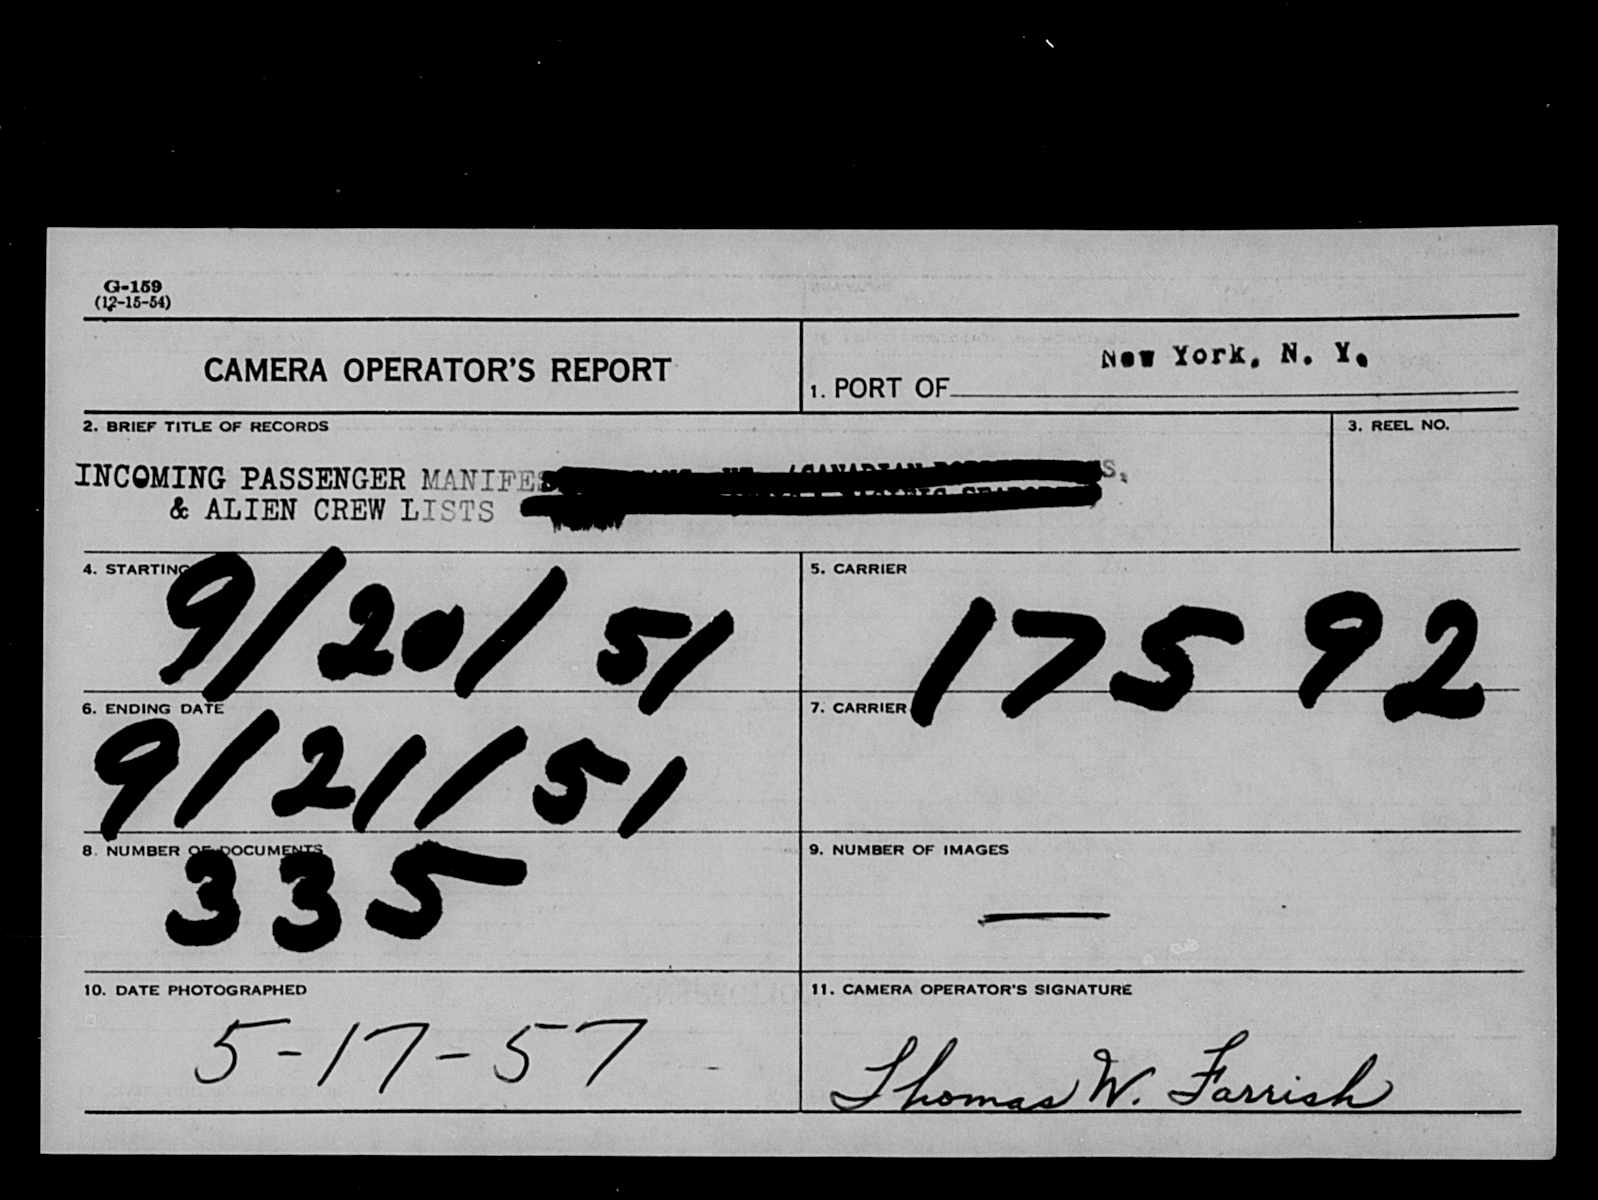 G-159
(12-15-54)
CAMERA OPERATOR'S REPORT
1. PORT OF New York, N. Y.
2. BRIEF TITLE OF RECORDS
3. REEL NO.
INCOMING PASSENGER MANIFES
& ALIEN CREW LISTS
4. STARTING
9/20/51
5. CARRIER
17592
6. ENDING DATE
9/21/51
7. CARRIER
8. NUMBER OF DOCUMENTS
335
9. NUMBER OF IMAGES
—
10. DATE PHOTOGRAPHED
5-17-57
11. CAMERA OPERATOR'S SIGNATURE
Thomas W. Farrish